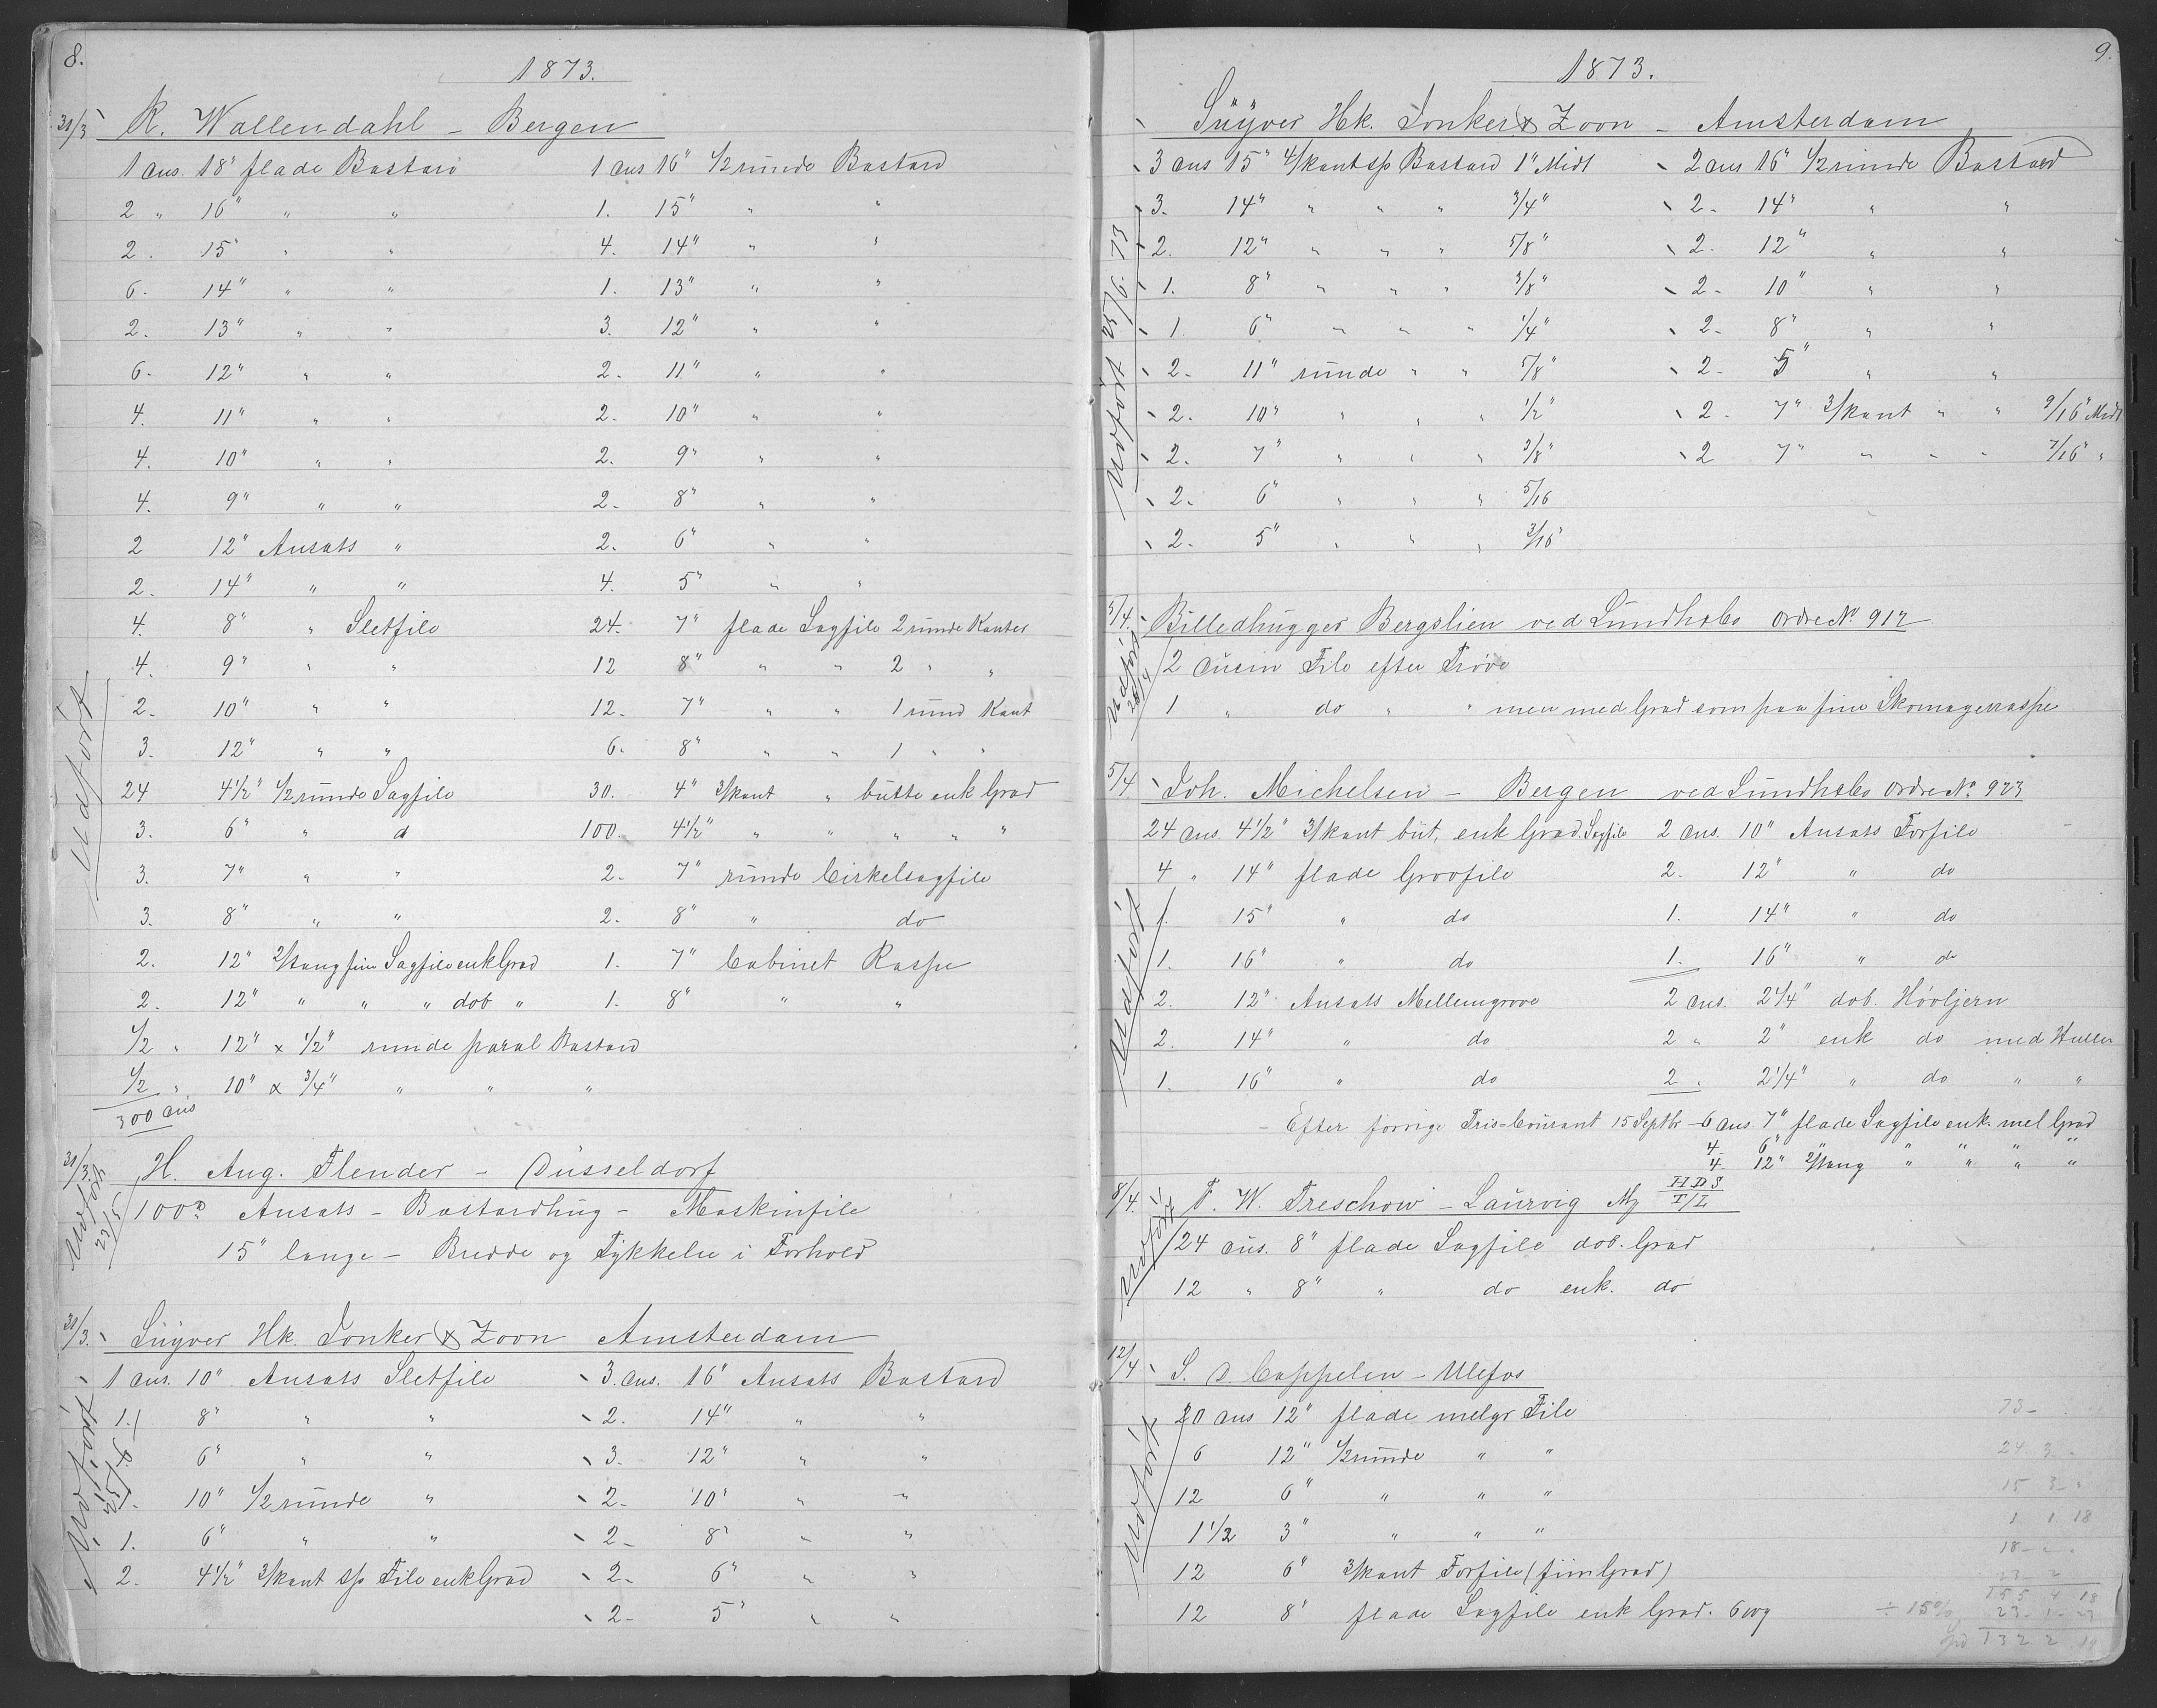 8.
1873.
31/3 R. Wallendahl - Bergen
1 dus. 18" flade Bastard
2 " 16" " "
2 . 15" " "
6 . 14" " "
2 . 13" " "
6 - 12" " "
4. 11" " "
4. 10" " "
4. 9" " "
2 12" Ansats "
2. 14" " "
4. 8" " Sletfile
4. 9" " "
2. 10" " "
3. 12" " "
24 4 1/2" 1/2 runde Sagfile
3. 6" " d
3. 7" " "
3. 8" " "
2. 12" fiin Sagfile enk Grad
2. 12" " " " dob "
1/2 " 12" x 1/2" runde paral Bastard
1/2 " 10" x 3/4" " " "
300 dus
1 dus 16" 1/2 runde Bastard
1. 15" " "
4. 14" " "
1. 13" " "
3. 12" " "
2. 11" " "
2. 10" " "
2. 9" " "
2. 8" " "
2. 6" " "
4. 5" " "
24. 7" flade Sagfile 2 runde Kanter
12 8" " " 2 " "
12. 7" " " 1 rund Kant
6. 8" " " 1 " "
30. 4" 3/kant " butte enk Grad
100. 4 1/2" " " " " "
2. 7" runde Cirkelsagfile
2. 8" " do
1. 7" Cabinet Raspe
1. 8" " "
Udført
31/3 H. Aug. Flender - Düsseldorf
100 D Ansats - Bastardhug - Maskinfile
15" lange - Bredde og Tykkelse i Forhold
Udført 23/5
31/3. Suyver Hk. Jonker & Zoon Amsterdam
1 dus. 10" Ansats Sletfile
1. 8" " "
6" " "
10" 1/2 runde "
1. 6" " "
2. 4 1/2" 3/kant sp File enk Grad
3. dus. 16" Ansats Bastard
2. 14" " "
3. 12" " "
2 - 10" " "
2 - 8" " "
2 - 6" " "
2 - 5" " "
Udført
9.
1873.
Suyver Hk. Jonker & Zoon - Amsterdam
3 dus 15" 4/kant sp Bastard 1" Midt
3. 14" " " " 3/4"
2. 12" " " " 5/8"
1. 8" " " " 3/8"
1. 6" " " " 1/4"
2 - 11" runde " " 5/8"
2. 10" " " " 1/2"
2. 7" " " " 3/8"
2. 6" " " " 5/16
2. 5" " " " 3/16"
2 dus 16" 1/2 runde Bastard
2 - 14" " "
2. 12" " "
2 - 10" " "
2 - 8" " "
2 - 5" " "
2 - 7" 3/kant " " 9/16" Midt
2 7" " " " 7/16" "
Udført 25/6. 73
3/4. Billedhugger Bergslien ved Lundhsbo Ordre No 912
2 dusin File efter Prøve
1 " do " " men med Grad som paa fine Skomagerraspe
Udført 26/4
5/4 Joh. Michelsen - Bergen ved Lundhsbo Ordre No. 923
24 dus. 4 1/2" 3/kant but. enk Grad. Sagfile
4 " 14" flade Grovfile
1. 15" " do
1. 16" " do
2. 12" Ansats Mellemgrove
2. 14" " do
1. 16" " do
2 dus. 10" Ansats Forfile
2. 12" " do
1. 14" " do
1. 16" " do
2 dus. 2 1/4" dob. Høvljern
2 " 2" enk do med Huller
2 " 2 1/4" " do " "
- Efter forrige Pris-Courant 15 Septbr - 6 dus 7" flade Sagfile enk mel Grad
4 6" " " " " "
4 12" " " " "
Udført
8/4. F. W. Treschow - Laurvig Mrk HDS T/L
24 dus. 8" flade Sagfile dob. Grad
12 " 8" " do enk. do
Udført
12/4 S. D. Cappelen - Ulefos
20 dus 12" flade melgr File
6 12" 1/2 runde " "
12 6" " " "
1 1/2 3" " " "
12 6" 3/kant Forfile (fiin Grad)
12 8" flade Sagfile enk Grad.
Udført
73 -
24 3 -
15 3 -
1 1 18
18 - -
23 2
155 4 18
÷ 15% 23 - 1 - 23
132 2 19